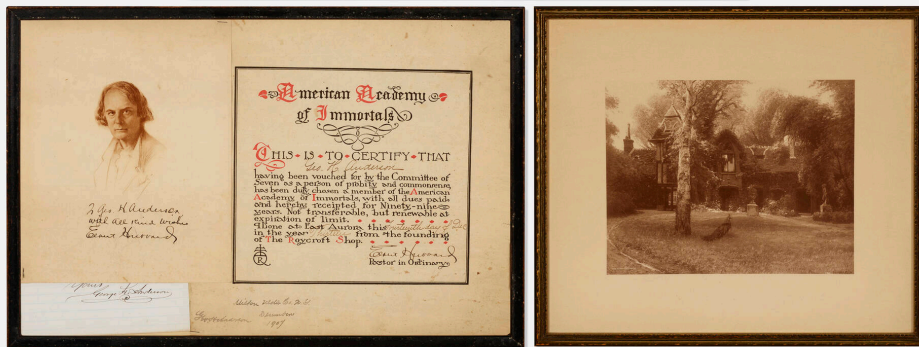 To Geo. H. Anderson
with all kind wishes
Elbert Hubbard
Yours
George H. Anderson
American Academy
of Immortals
THIS · IS · TO · CERTIFY · THAT
Geo. H. Anderson
having been vouched for by the Committee of
Seven as a person of probity and commonsense,
has been duly chosen a member of the American
Academy of Immortals, with all dues paid
and hereby receipted for Ninety-nine
years. Not transferable, but renewable at
expiration of limit.
Done at East Aurora this day of Dec
in the year from the founding
of The Roycroft Shop.
Elbert Hubbard
Pastor in Ordinary
R
1907